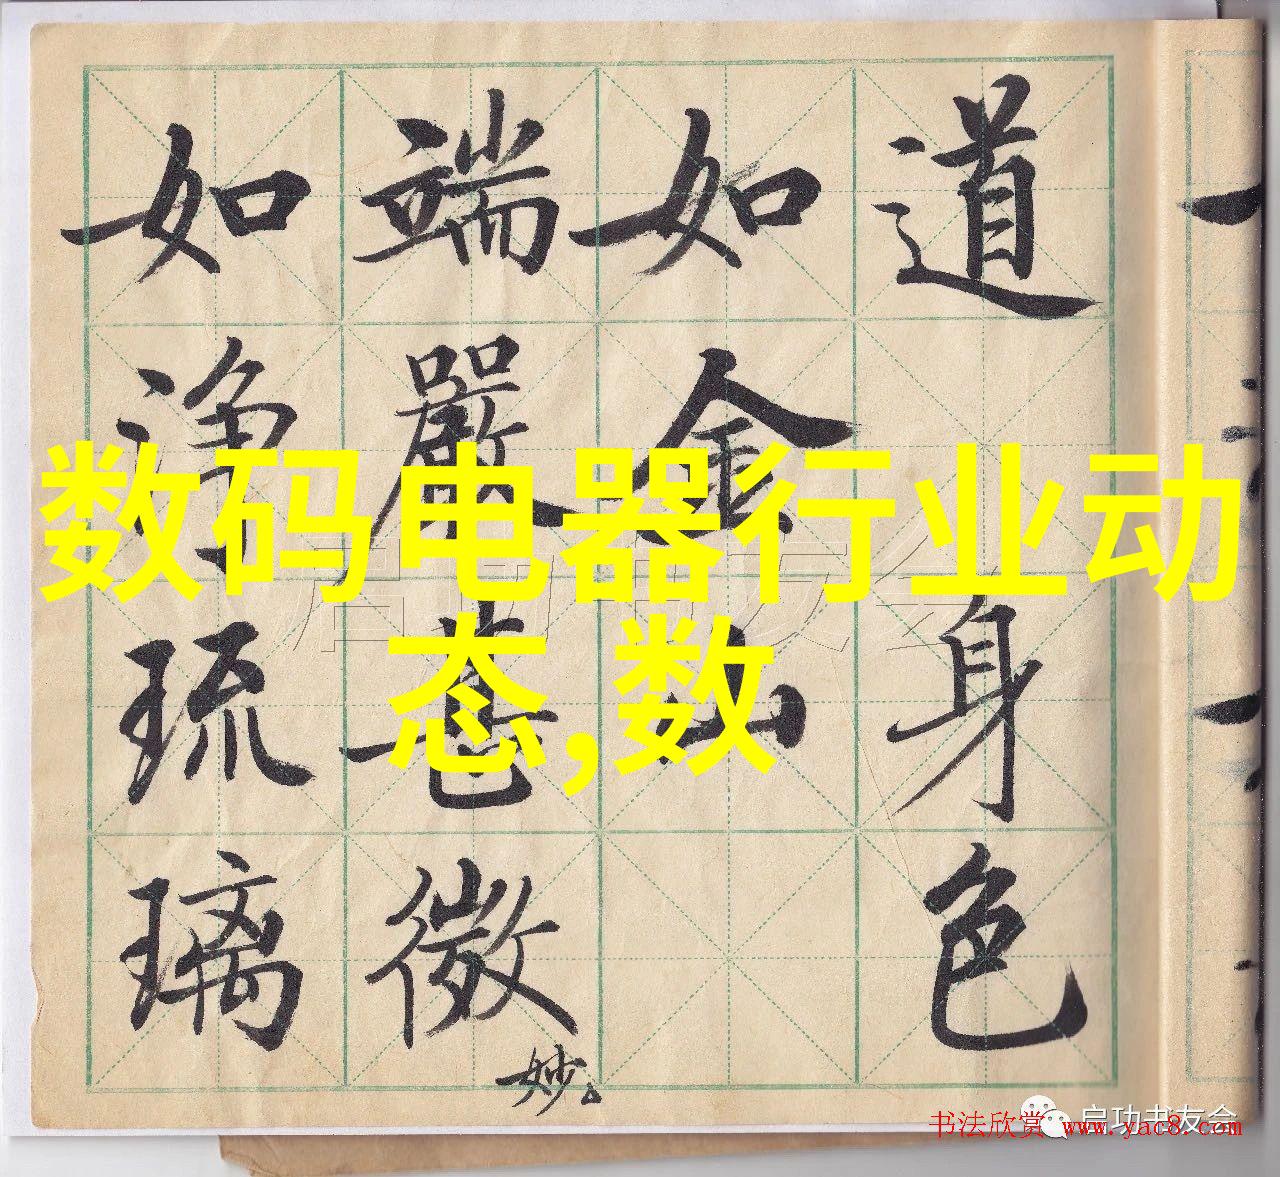 道身色
如金山
端嚴甚微妙
如淨琉璃
数码电器行业动
态,数
启功书友会
启功书友会
书法欣赏 www.yac8.com